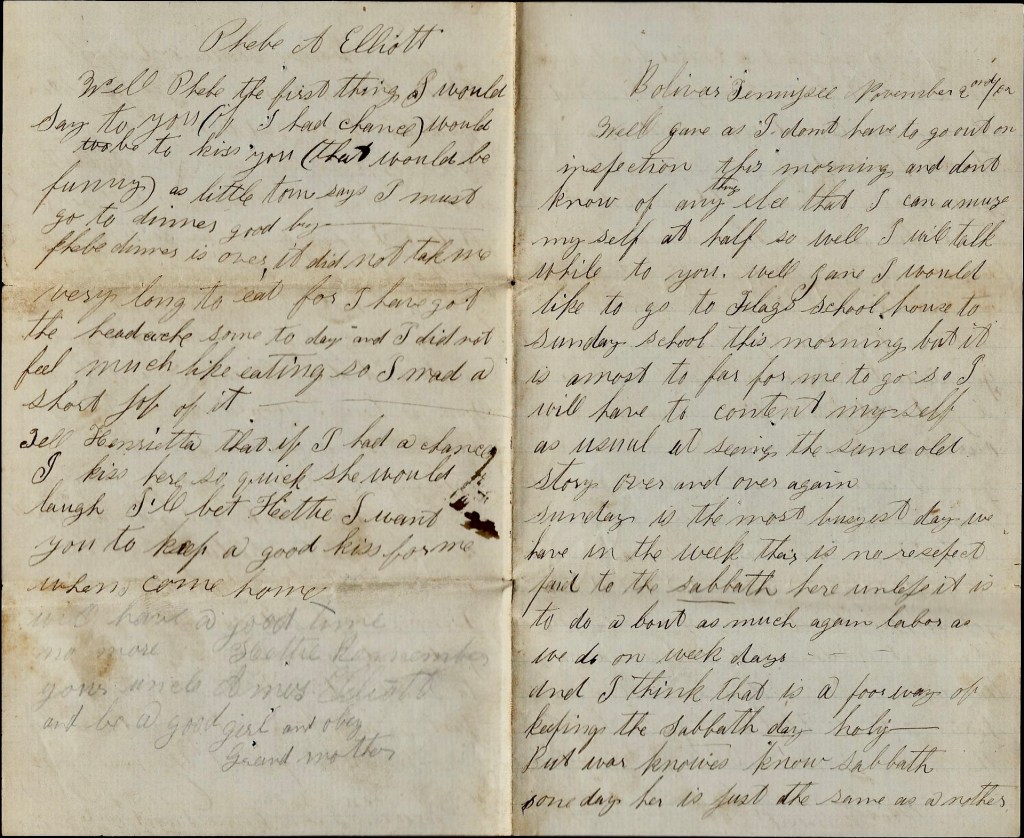 Phebe A Elliott
Well Phebe the first thing I would
say to you (if I had chance) would
be to kiss you (that would be
funny) as little tom says I must
go to dinner good by
Phebe dinner is over, it did not take me
very long to eat for I have got
the headache some to day and I did not
feel much like eating so I mad a
short job of it
Tell Henrietta that if I had a chance
I kiss here so quick she would
laugh I'll bet Hettie I want
you to keep a good kiss for me
when come home
will have a good time
no more Hettie remember
your uncle Amos
and be a good girl and obey
Grand mother
Bolivar Tennisee November 2nd/62
Well gane as I dont have to go out on
inspection this morning and dont
know of any thing else that I can amuse
my self at half so well I will talk
while to you. well gane I would
like to go to Flags school house to
sunday school this morning but it
is amost to far for me to go so I
will have to content my self
as usual at seeing the same old
story over and over again
Sunday is the most buysist day we
have in the week thair is no respect
paid to the sabbath here unless it is
to do a bout as much again labor as
we do on week days
and I think that is a poor way of
keeping the Sabbath day holy
But war knowes know sabbath
one day her is just the same as a nother